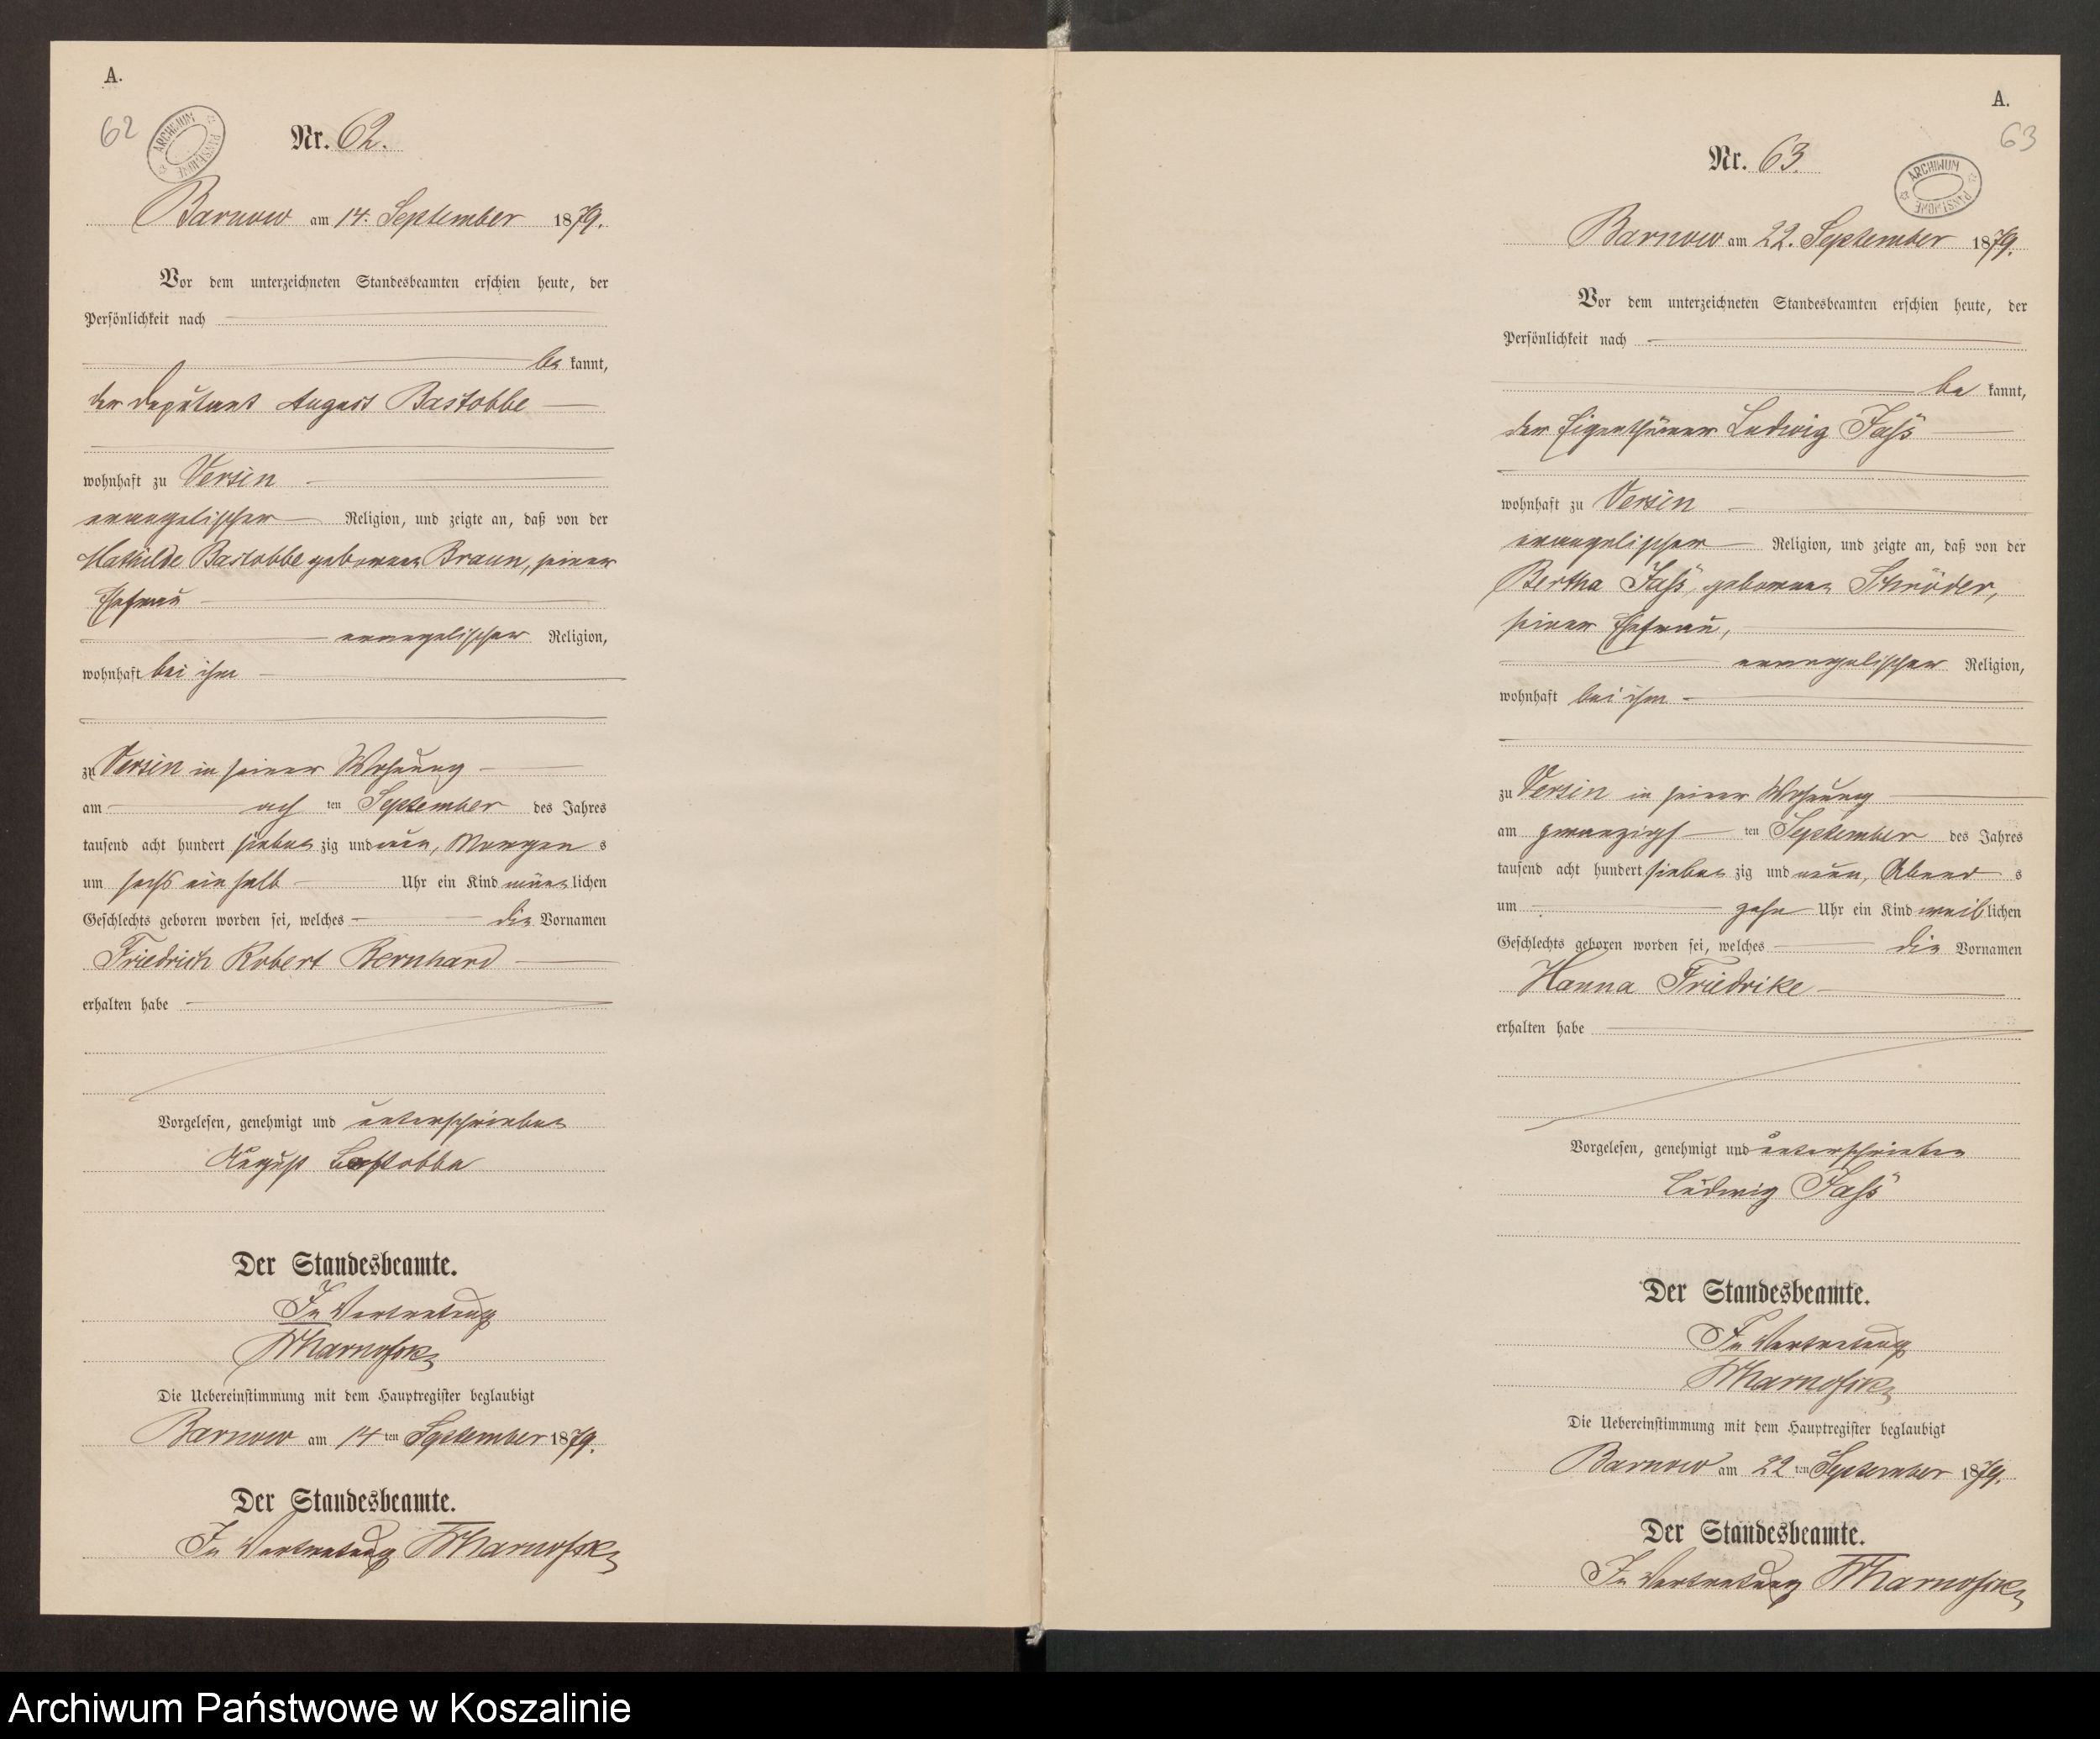 A.
62
ARCHIWUM PAŃSTWOWE
Nr. 62.
Barnow am 14. September 1879.
Vor dem unterzeichneten Standesbeamten erschien heute, der
Persönlichkeit nach
be kannt,
der Deputant August Bastobbe
wohnhaft zu Versin
evangelischer Religion, und zeigte an, daß von der
Mathilde Bastobbe geborenen Braun, seiner
Ehefrau
evangelischer Religion,
wohnhaft bei ihm
zu Versin in seiner Wohnung
am ach ten September des Jahres
tausend acht hundert sieben zig und neun, Morgen s
um sechs ein halb Uhr ein Kind männ lichen
Geschlechts geboren worden sei, welches die Vornamen
Friedrich Robert Bernhard
erhalten habe
Vorgelesen, genehmigt und unterschrieben
August Bastobbe
Der Standesbeamte.
In Vertretung
Die Uebereinstimmung mit dem Hauptregister beglaubigt
Barnow am 14 ten September 1879.
Der Standesbeamte.
In Vertretung
A.
63
ARCHIWUM PAŃSTWOWE
Nr. 63.
Barnow am 22. September 1879.
Vor dem unterzeichneten Standesbeamten erschien heute, der
Persönlichkeit nach
be kannt,
der Eigenthümer Ludwig Jaß
wohnhaft zu Versin
evangelischer Religion, und zeigte an, daß von der
Bertha Jaß, geborenen Schröder,
seiner Ehefrau,
evangelischer Religion,
wohnhaft bei ihm
zu Versin in seiner Wohnung
am zwanzigs ten September des Jahres
tausend acht hundert sieben zig und neun, Abend s
um zehn Uhr ein Kind weib lichen
Geschlechts geboren worden sei, welches die Vornamen
Hanna Friedrike
erhalten habe
Vorgelesen, genehmigt und unterschrieben
Ludwig Jaß
Der Standesbeamte.
In Vertretung
Die Uebereinstimmung mit dem Hauptregister beglaubigt
Barnow am 22 ten September 1879.
Der Standesbeamte.
In Vertretung
Archiwum Państwowe w Koszalinie